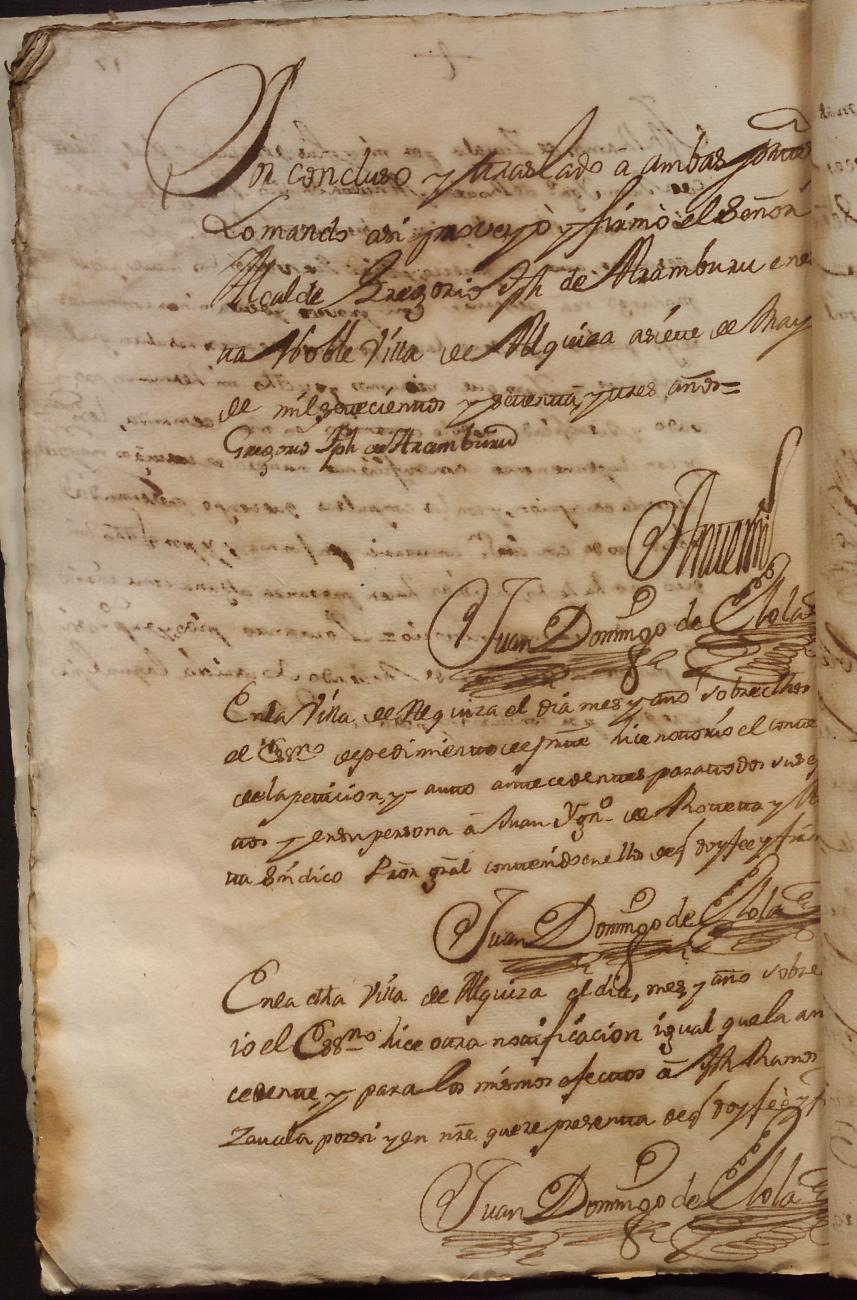 Por concluso y traslado à ambas partes
Lo mandò asi proveyò y firmò el Señor
Alcalde Gregorio Jph de Aramburu en es
ta Noble Villa de Alquiza a siete de May
de mil setecientos y setenta y tres años=
Gregorio Jph de Aramburu
Antemi
Juan Domingo de Elola
En la Villa de Alquiza el dia mes y año sobredhos
el Essno de pedimiento de parte hice notorio el conte
de la peticion, y auto antecedentes para todos sus e
tos y en su persona à Juan Ygno de Rotteta y
ta Sindico Prōr grāl contenido en ellos de q doy fee y firm
Juan Domingo de Elola
En la dha Villa de Alquiza el dia, mes, y año sobre
io el Essno hice otra notificacion igual que la an
cedente, y para los mismos efectos à Jph Ramos
Zavala por si y en nre que representa de q doy feè y f
Juan Domingo de Elola